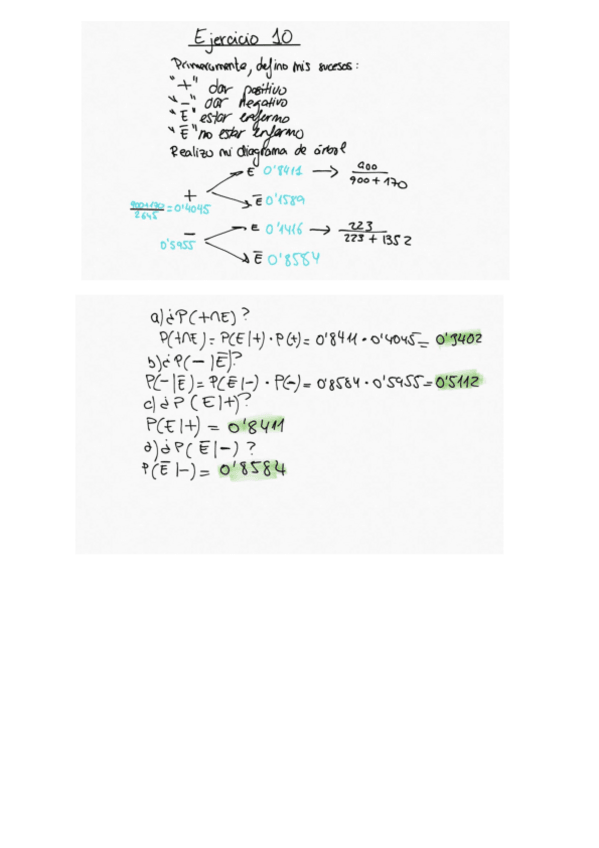 Ejercicio 10
Primeramente, defino mis sucesos:
"+" dar positivo
"-" dar negativo
"E" estar enfermo
"E̅" no estar enfermo
Realizo mi diagrama de árbol
E 0'8411 → 900/900+170
+
E̅ 0'1589
900+170/2645 = 0'4045
E 0'1416 → 223/223+1352
-
0'5955
E̅ 0'8584
a) ¿P(+∩E)?
P(+∩E) = P(E|+)·P(+) = 0'8411·0'4045 = 0'3402
b) ¿P(-|E̅)?
P(-|E̅) = P(E̅|-)·P(-) = 0'8584·0'5955 = 0'5112
c) ¿P(E|+)?
P(E|+) = 0'8411
d) ¿P(E̅|-)?
P(E̅|-) = 0'8584